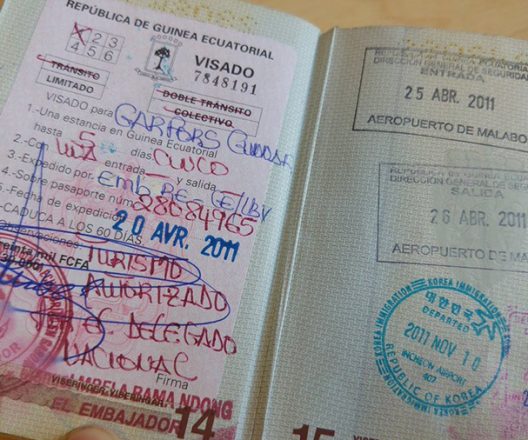 REPÚBLICA DE GUINEA ECUATORIAL
1 2 3
4 5 6
VISADO
7848191
TRÁNSITO
LIMITADO
DOBLE TRÁNSITO
COLECTIVO
VISADO para GARFORS GUNNAR
1.-Una estancia en Guinea Ecuatorial
hasta 5 días CINCO
2.-Co UNA entrada y salida
3.-Expedido por Emb. REG. GE/LBV
4.-Sobre pasaporte núm. 28084965
5.-Fecha de expedición 20 AVR. 2011
-CADUCA A LOS 60 DIAS
TURISMO
mil FCFA
AUTORIZADO
EL DELEGADO
NACIONAL
Firma
RAMA NDONG
EL EMBAJADOR
14
DIRECCIÓN GENERAL DE SEGURIDAD
ENTRADA
25 ABR. 2011
AEROPUERTO DE MALABO
DIRECCIÓN GENERAL DE SE
SALIDA
26 ABR. 2011
AEROPUERTO DE MALABO
KOREA IMMIGRATION
대한민국
DEPARTED
2011 NOV 10
INCHEON AIRPORT
REPUBLIC OF KOREA
15